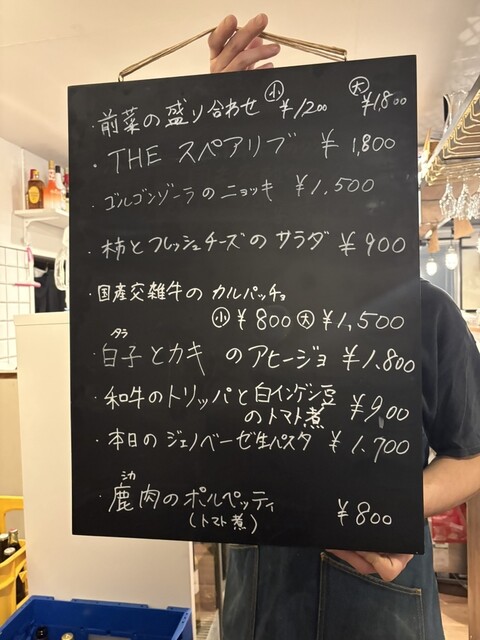 ・前菜の盛り合わせ ㊥小 ¥1200 大 ¥1,800
・THE スペアリブ ¥ 1,800
・ゴルゴンゾーラのニョッキ ¥1,500
・柿とフレッシュチーズの サラダ ¥900
・国産交雑牛の カルパッチョ
小 ¥800 大 ¥1,500
タラ
・白子とカキ のアヒージョ ¥1,800
・和牛のトリッパと白インゲン豆
のトマト煮 ¥900
・本日の ジェノベーゼ生パスタ ¥ 1,700
シカ
・鹿肉のポルペッティ
(トマト煮) ¥800